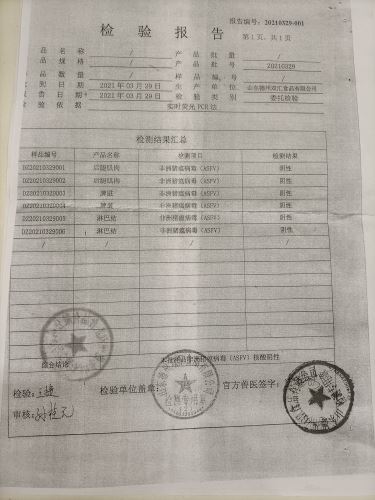 报告编号：20210329-001
检 验 报 告
第 1 页，共 1 页
品 名 名 称 / 产 品 批 量 /
品 规 格 / 产 品 批 号 20210329
品 数 量 / 样 品 编 号 /
到 日 期 2021 年 03 月 29 日 生 产 单 位 山东德州双汇食品有限公司
告 日 期 2021 年 03 月 29 日 检 验 类 别 委托检验
验 依 据 实时荧光 PCR 法
检测结果汇总
样品编号 产品名称 检测项目 检测结果
DZ20210329001 后腿肌肉 非洲猪瘟病毒（ASFV） 阴性
DZ20210329002 后腿肌肉 非洲猪瘟病毒（ASFV） 阴性
DZ20210329003 脾脏 非洲猪瘟病毒（ASFV） 阴性
DZ20210329004 脾脏 非洲猪瘟病毒（ASFV） 阴性
DZ20210329005 淋巴结 非洲猪瘟病毒（ASFV） 阴性
DZ20210329006 淋巴结 非洲猪瘟病毒（ASFV） 阴性
/ / / /
综合结论 样品非洲猪瘟病毒（ASFV）核酸阴性
检验： 检验单位盖章： 官方兽医签字：
审核：
检验专用章